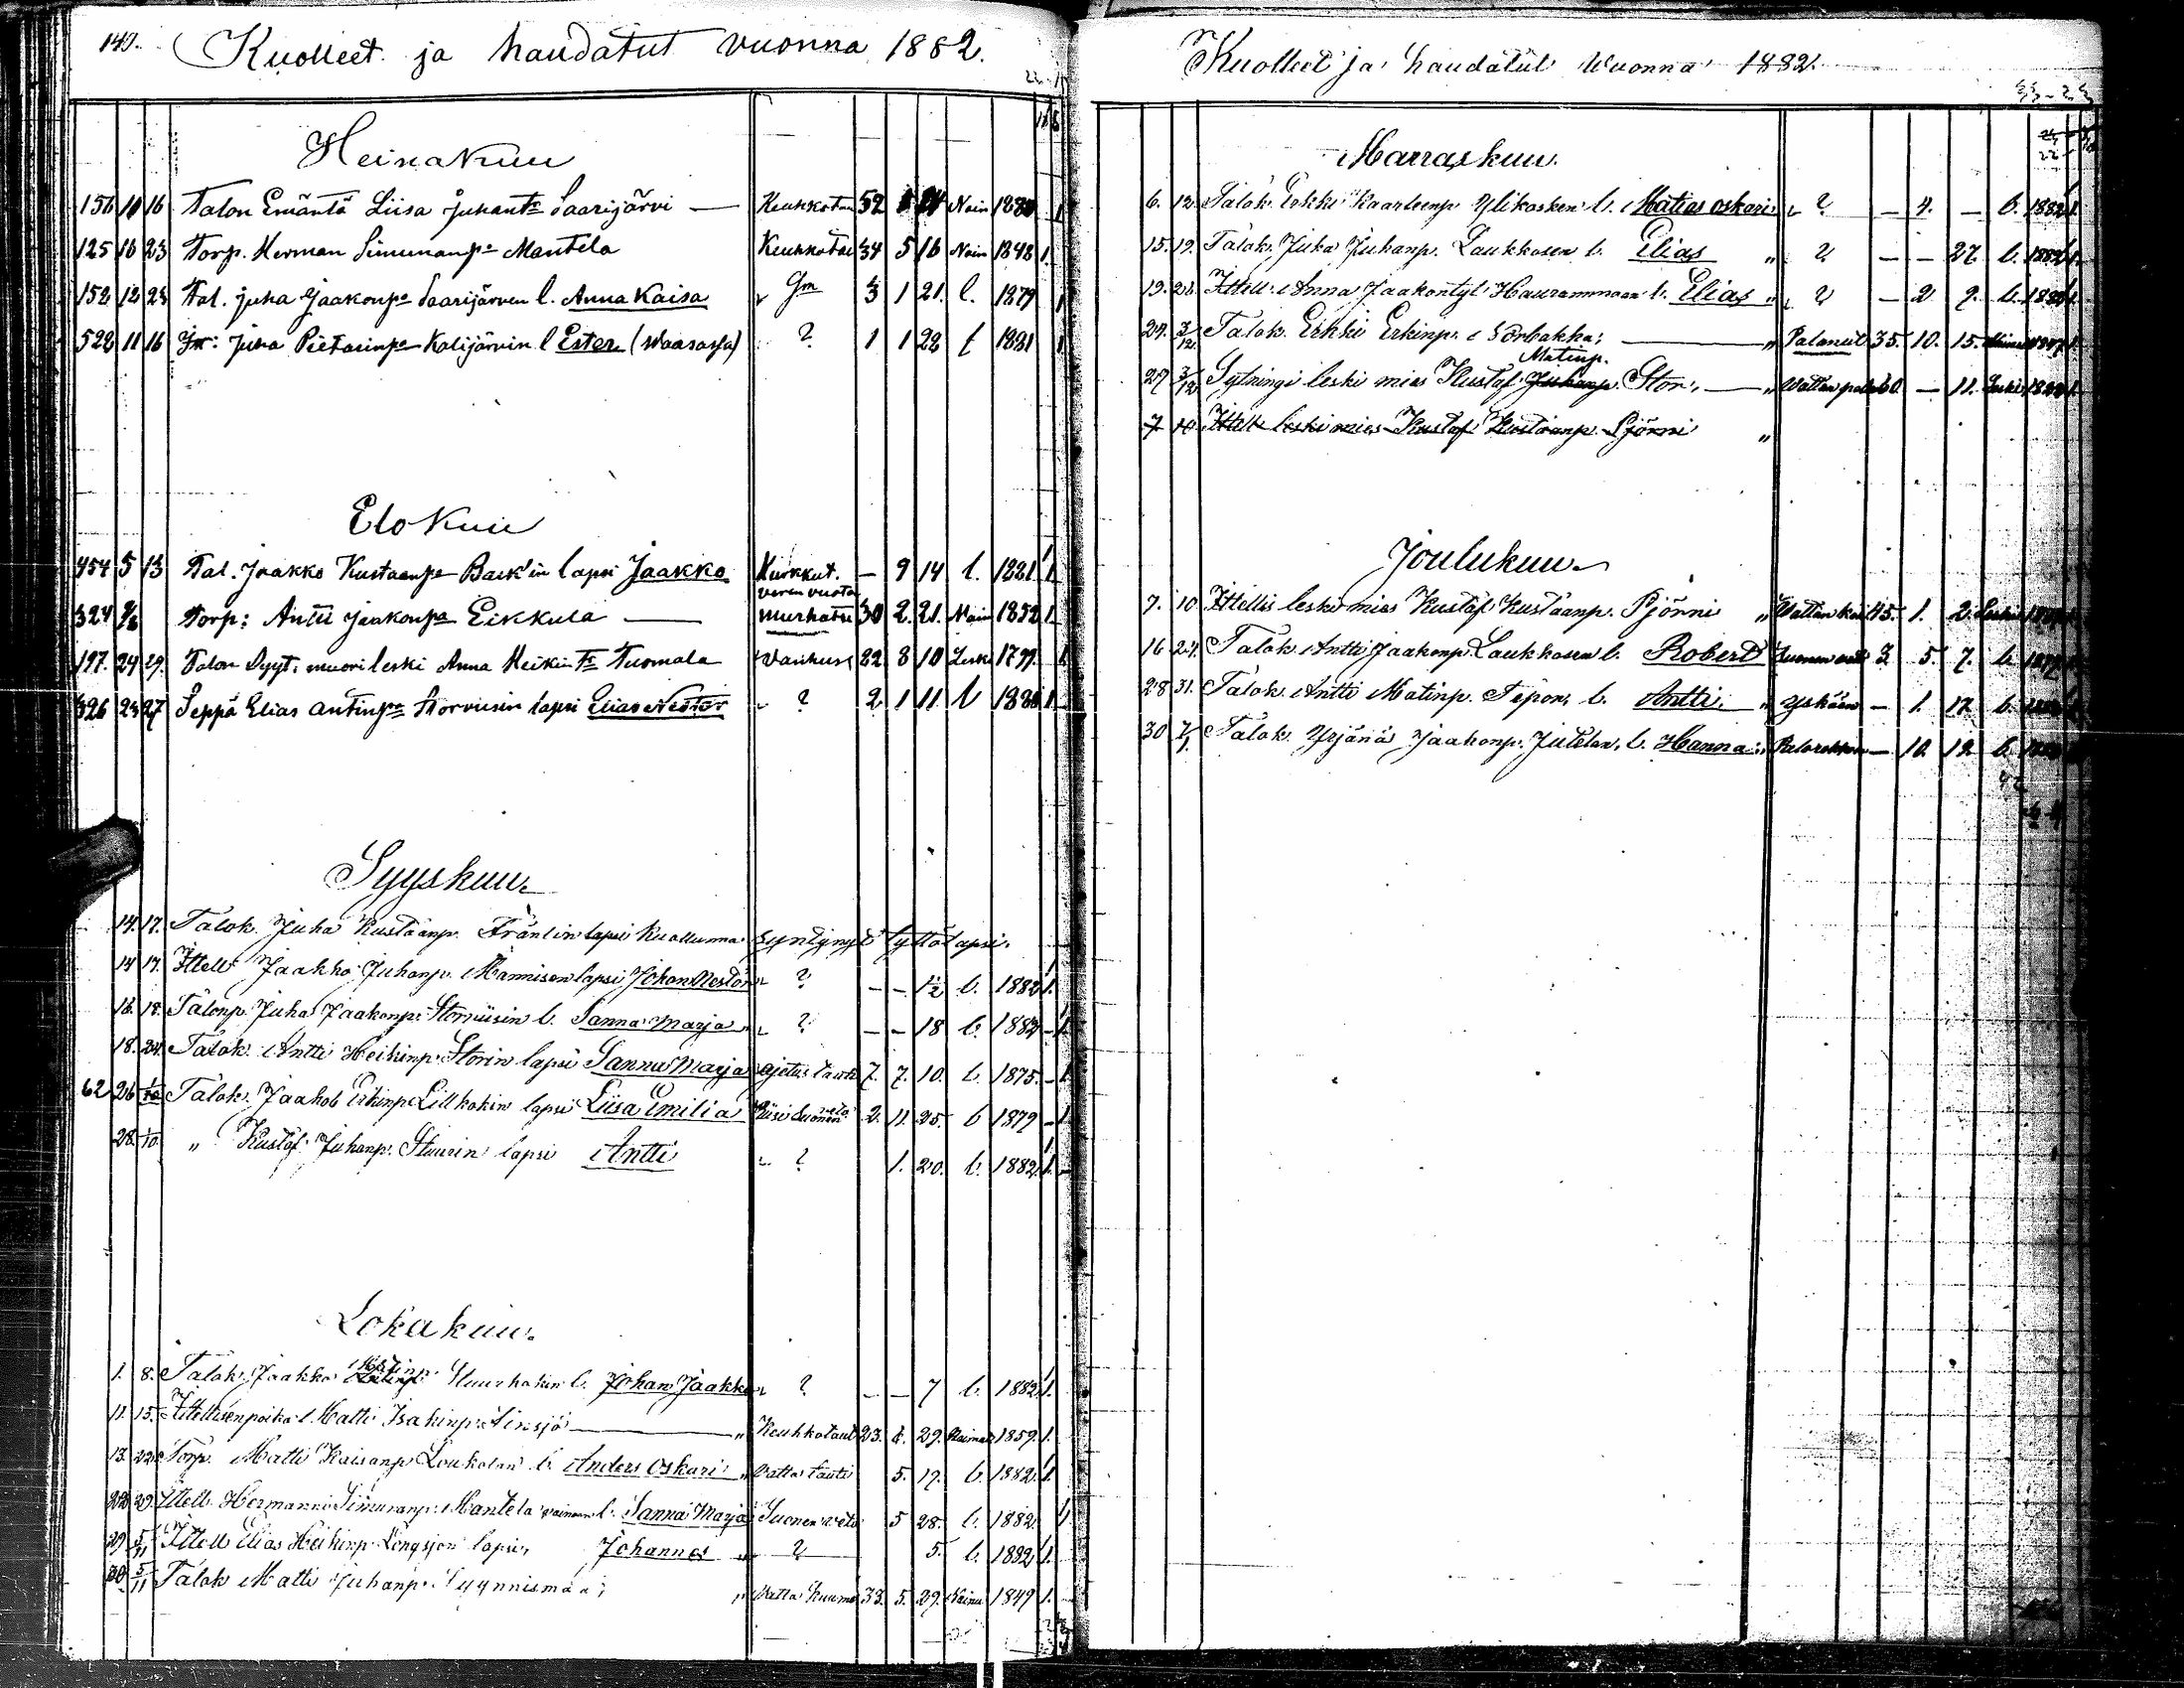 140. Kuolleet ja haudatut vuonna 1882.
Heinäkuu
156 10 16 Talon Emäntä Liisa Juhantr Saarijärvi — Keuhkotau 52 Nain 1830 1
125 18 23 Torp. Herman Simunanpa Mantela Keuhkotau 34 5 16 Nain 1848 1.
152 12 23 Tal. Juha Jaakonpa Saarijärven l. Anna Kaisa 3 1 21. l. 1879 1
522 11 16 Juha Pietarinpa Kalijärvin l Ester (Waasassa) ? 1 1 22 l 1881 1
Elokuu
454 5 13 Tal. Jaakko Kustaanpa Back'in lapsi Jaakko Kurkkut. — 9 14 l. 1881 1
veren vuoto
324 Torp: Antti Jaakonpa Eikkula — murhattu 30 2. 21. Nain 1852 1
197. 24 29. Talon Syyt. muori leski Anna Heikin Tr Tuomala Vanhuus 82 8 10 Leski 1799. 1
326 23 27 Seppä Elias Antinpa Storvusin lapsi Elias Nestor " ? 2 1 11. l 1880 1
Syyskuu.
14. 17. Talok. Juha Kustaanp. Fräntin lapsi Kuolluna syntynyt tyttölapsi.
14 17. Itell. Jaakko Juhanp. Mannisen lapsi Johan Nestor " ? — — 1/2 l. 1882 1.
16. 18. Talonp. Juha Jaakonp. Storvusin l. Sanna Marja " ? — — 18 l. 1882 — 1.
18. 24. Talok. Antti Heikinp. Storin lapsi Sanna Marja ajetus tauti 7. 7. 10. l. 1875. — 1.
62 26 1/10 Talok. Jaakob Erkinp. Lillkakin lapsi Liisa Emilia Riisi Suonenveto 2. 11. 25. l 1879 — 1
28. 1/10. " Kustaf Juhanp. Stuurin lapsi Antti " ? 1. 20. l. 1882. 1.
Lokakuu.
1. 8. Talok. Jaakko Stuurkakin l. Johan Jaakko " ? — — 7 l. 1882. 1.
11. 15. Itellisenpoika Matti Isakinp. Finsjö — " Keuhkotauti 23. 29. Naimat. 1859. 1.
13. 22. Torp. Matti Kaisanp. Loukolan l. Anders Oskari " Vatta tauti 5. 17. l. 1882. 1.
22. 29. Itell. Hermanni Simunanp. Mantela vainaan l. Sanna Marja Suonen veto 5 28. l. 1882 1
29 5/11 Itell. Elias Heikinp. Långsjön lapsi, Johannes " ? 5. l. 1882 1.
30 5/11 Talok Matti Juhanp. Syynnismaa; " Vatta kuume 33. 5. 29. Nainu 1849 1.
Kuolleet ja haudatut Wuonna 1882.
Marraskuu.
6. 12. Talok. Erkki Kaarleenp. Ylikosken l. Matias Oskari " ? — 4. — l. 1882 1.
15. 19. Talok. Juha Juhanp. Laukkosen l. Elias " ? — — 27. l. 1882 1.
19. 26. Itell. Anna Jaakontyt. Haurammaan l. Elias " ? — 2. 9. l. 1882 1.
24. 3/12. Talok. Erkki Erkinp. Sorbakka; — " Palanut 35. 10. 15. 1.
Matinp.
27 3/12 Sytningi leski mies Kustaf Juhanp. Stor, — " Wattan 60. — 11. Leski 1822 1.
7 10. Itell. leski mies Kustaf Kustaanp. Pjönni "
Joulukuu.
7. 10 Itellis leski mies Kustaf Kustaanp. Pjönni " Wattan 45. 1. 2. Leski
16 24. Talok. Antti Jaakonp. Laukkosen l. Robert Suonen veto 3. 5. 7. l.
28 31. Talok. Antti Matinp. Tepon, l. Antti. " yskään — 1. 17. l.
30 7/1. Talok. Yrjänä Jaakonp. Jutelan, l. Hanna. " — 10. 12. l.